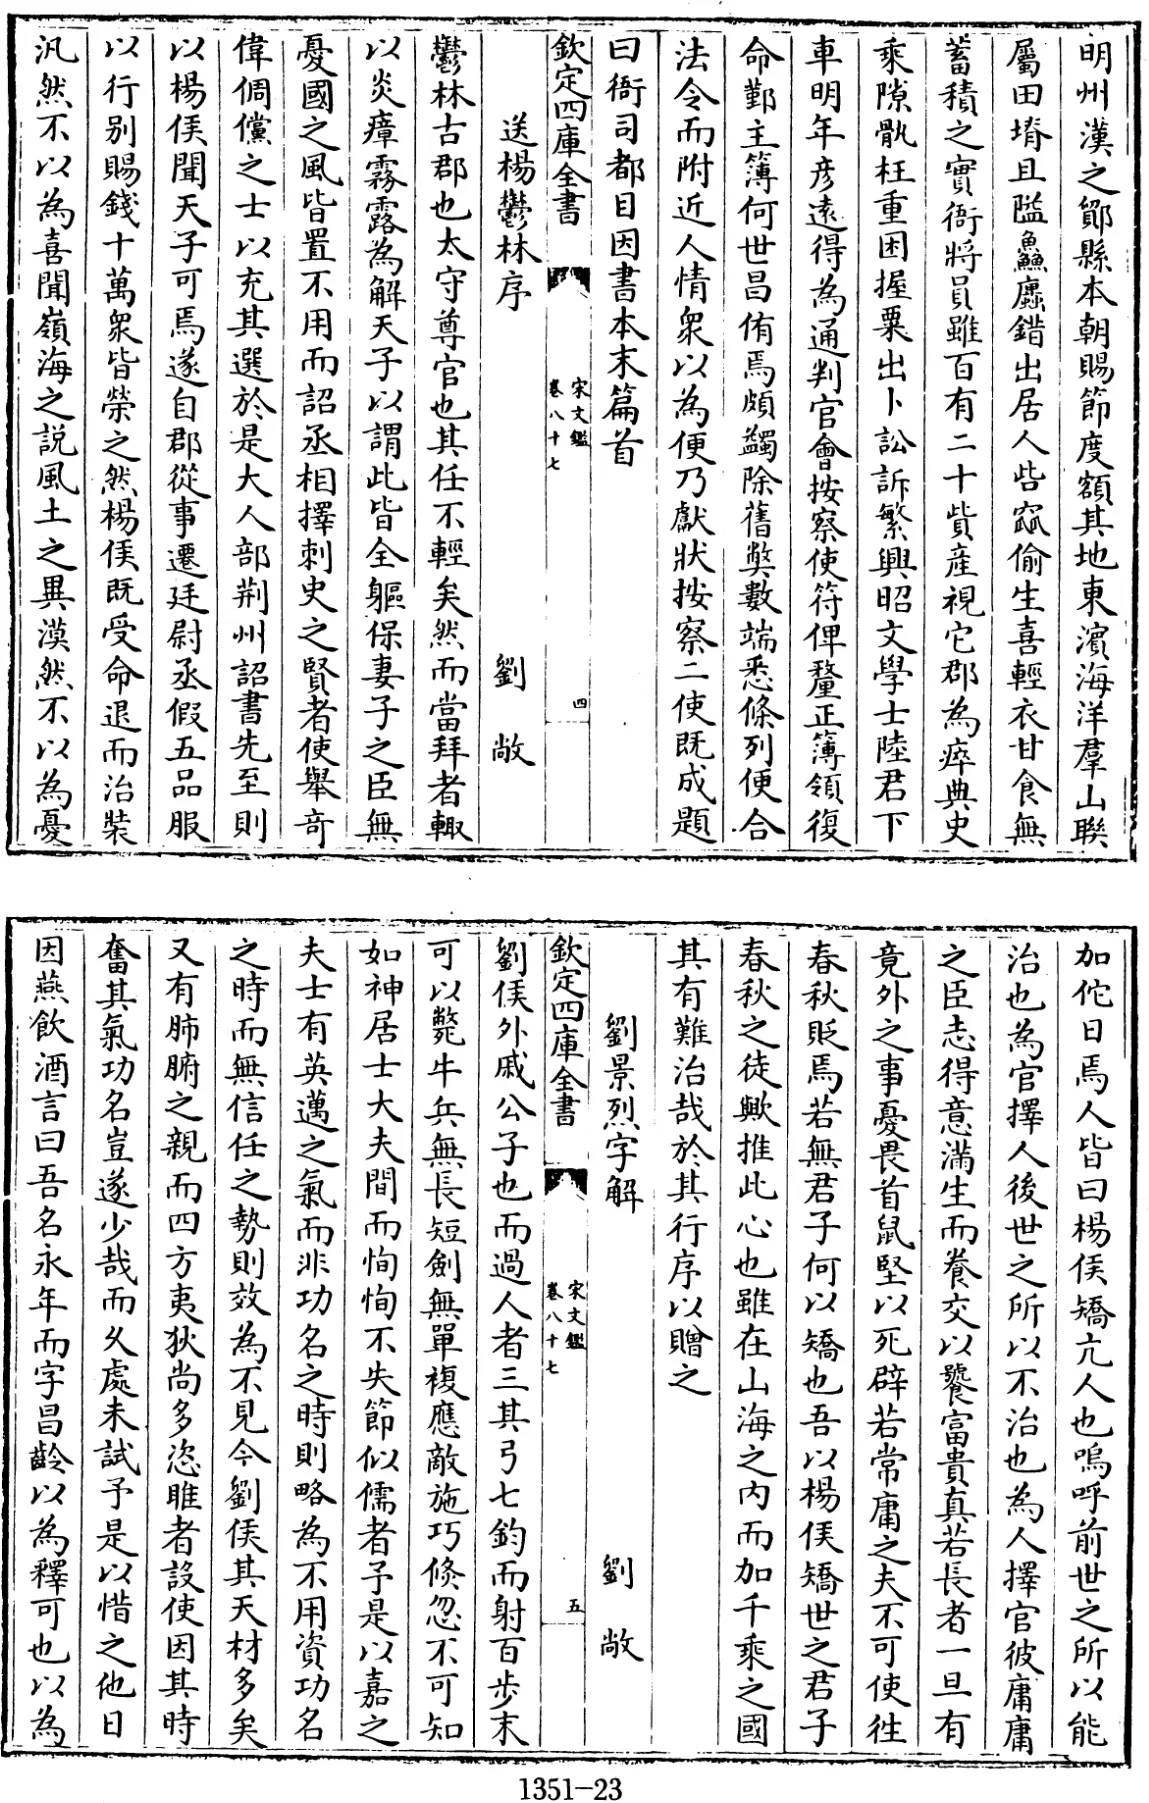 明州漢之鄮縣本朝賜節度額其地東濱海洋羣山聯
屬田塉且隘鱻麤錯出居人呰窳偷生喜輕衣甘食無
蓄積之實衙將員雖百有二十貲產視它郡為瘁典史
乘隙骫枉重困握粟出卜訟訴繁興昭文學士陸君下
車明年彥遠得為通判官會按察使符俾釐正簿領復
命鄞主簿何世昌侑焉頗蠲除舊獘數端悉條列便合
法令而附近人情衆以為便乃獻狀按察二使既成題
曰衙司都目因書本末篇首
欽定四庫全書
宋文鑑
卷八十七
四
送楊鬱林序
劉敞
鬱林古郡也太守尊官也其任不輕矣然而當拜者輙
以炎瘴霧露為解天子以謂此皆全軀保妻子之臣無
憂國之風皆置不用而詔丞相擇刺史之賢者使舉奇
偉倜儻之士以充其選於是大人部荆州詔書先至則
以楊侯聞天子可焉遂自郡從事遷廷尉丞假五品服
以行别賜錢十萬衆皆榮之然楊侯既受命退而治裝
汎然不以為喜聞嶺海之説風土之異漠然不以為憂
加佗日焉人皆曰楊侯矯亢人也嗚呼前世之所以能
治也為官擇人後世之所以不治也為人擇官彼庸庸
之臣志得意滿生而養交以饕富貴真若長者一旦有
竟外之事憂畏首鼠堅以死辟若常庸之夫不可使徃
春秋貶焉若無君子何以矯也吾以楊侯矯世之君子
春秋之徒歟推此心也雖在山海之内而加千乘之國
其有難治哉於其行序以贈之
劉景烈字解
劉敞
欽定四庫全書
宋文鑑
卷八十七
五
劉侯外戚公子也而過人者三其弓七鈞而射百步末
可以斃牛兵無長短劍無單複應敵施巧倐忽不可知
如神居士大夫間而恂恂不失節似儒者予是以嘉之
夫士有英邁之氣而非功名之時則略為不用資功名
之時而無信任之勢則效為不見今劉侯其天材多矣
又有肺腑之親而四方夷狄尚多恣睢者設使因其時
奮其氣功名豈遂少哉而久處未試予是以惜之他日
因燕飲酒言曰吾名永年而字昌齡以為釋可也以為
1351-23